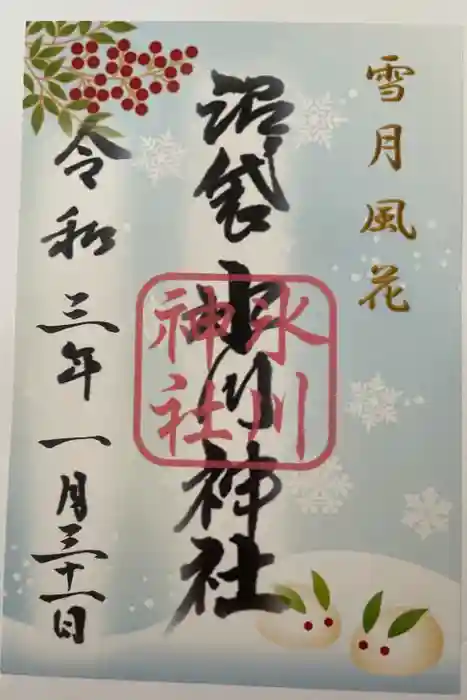 雪月風花
沼袋 氷川神社
氷川
神社
令和三年一月三十一日